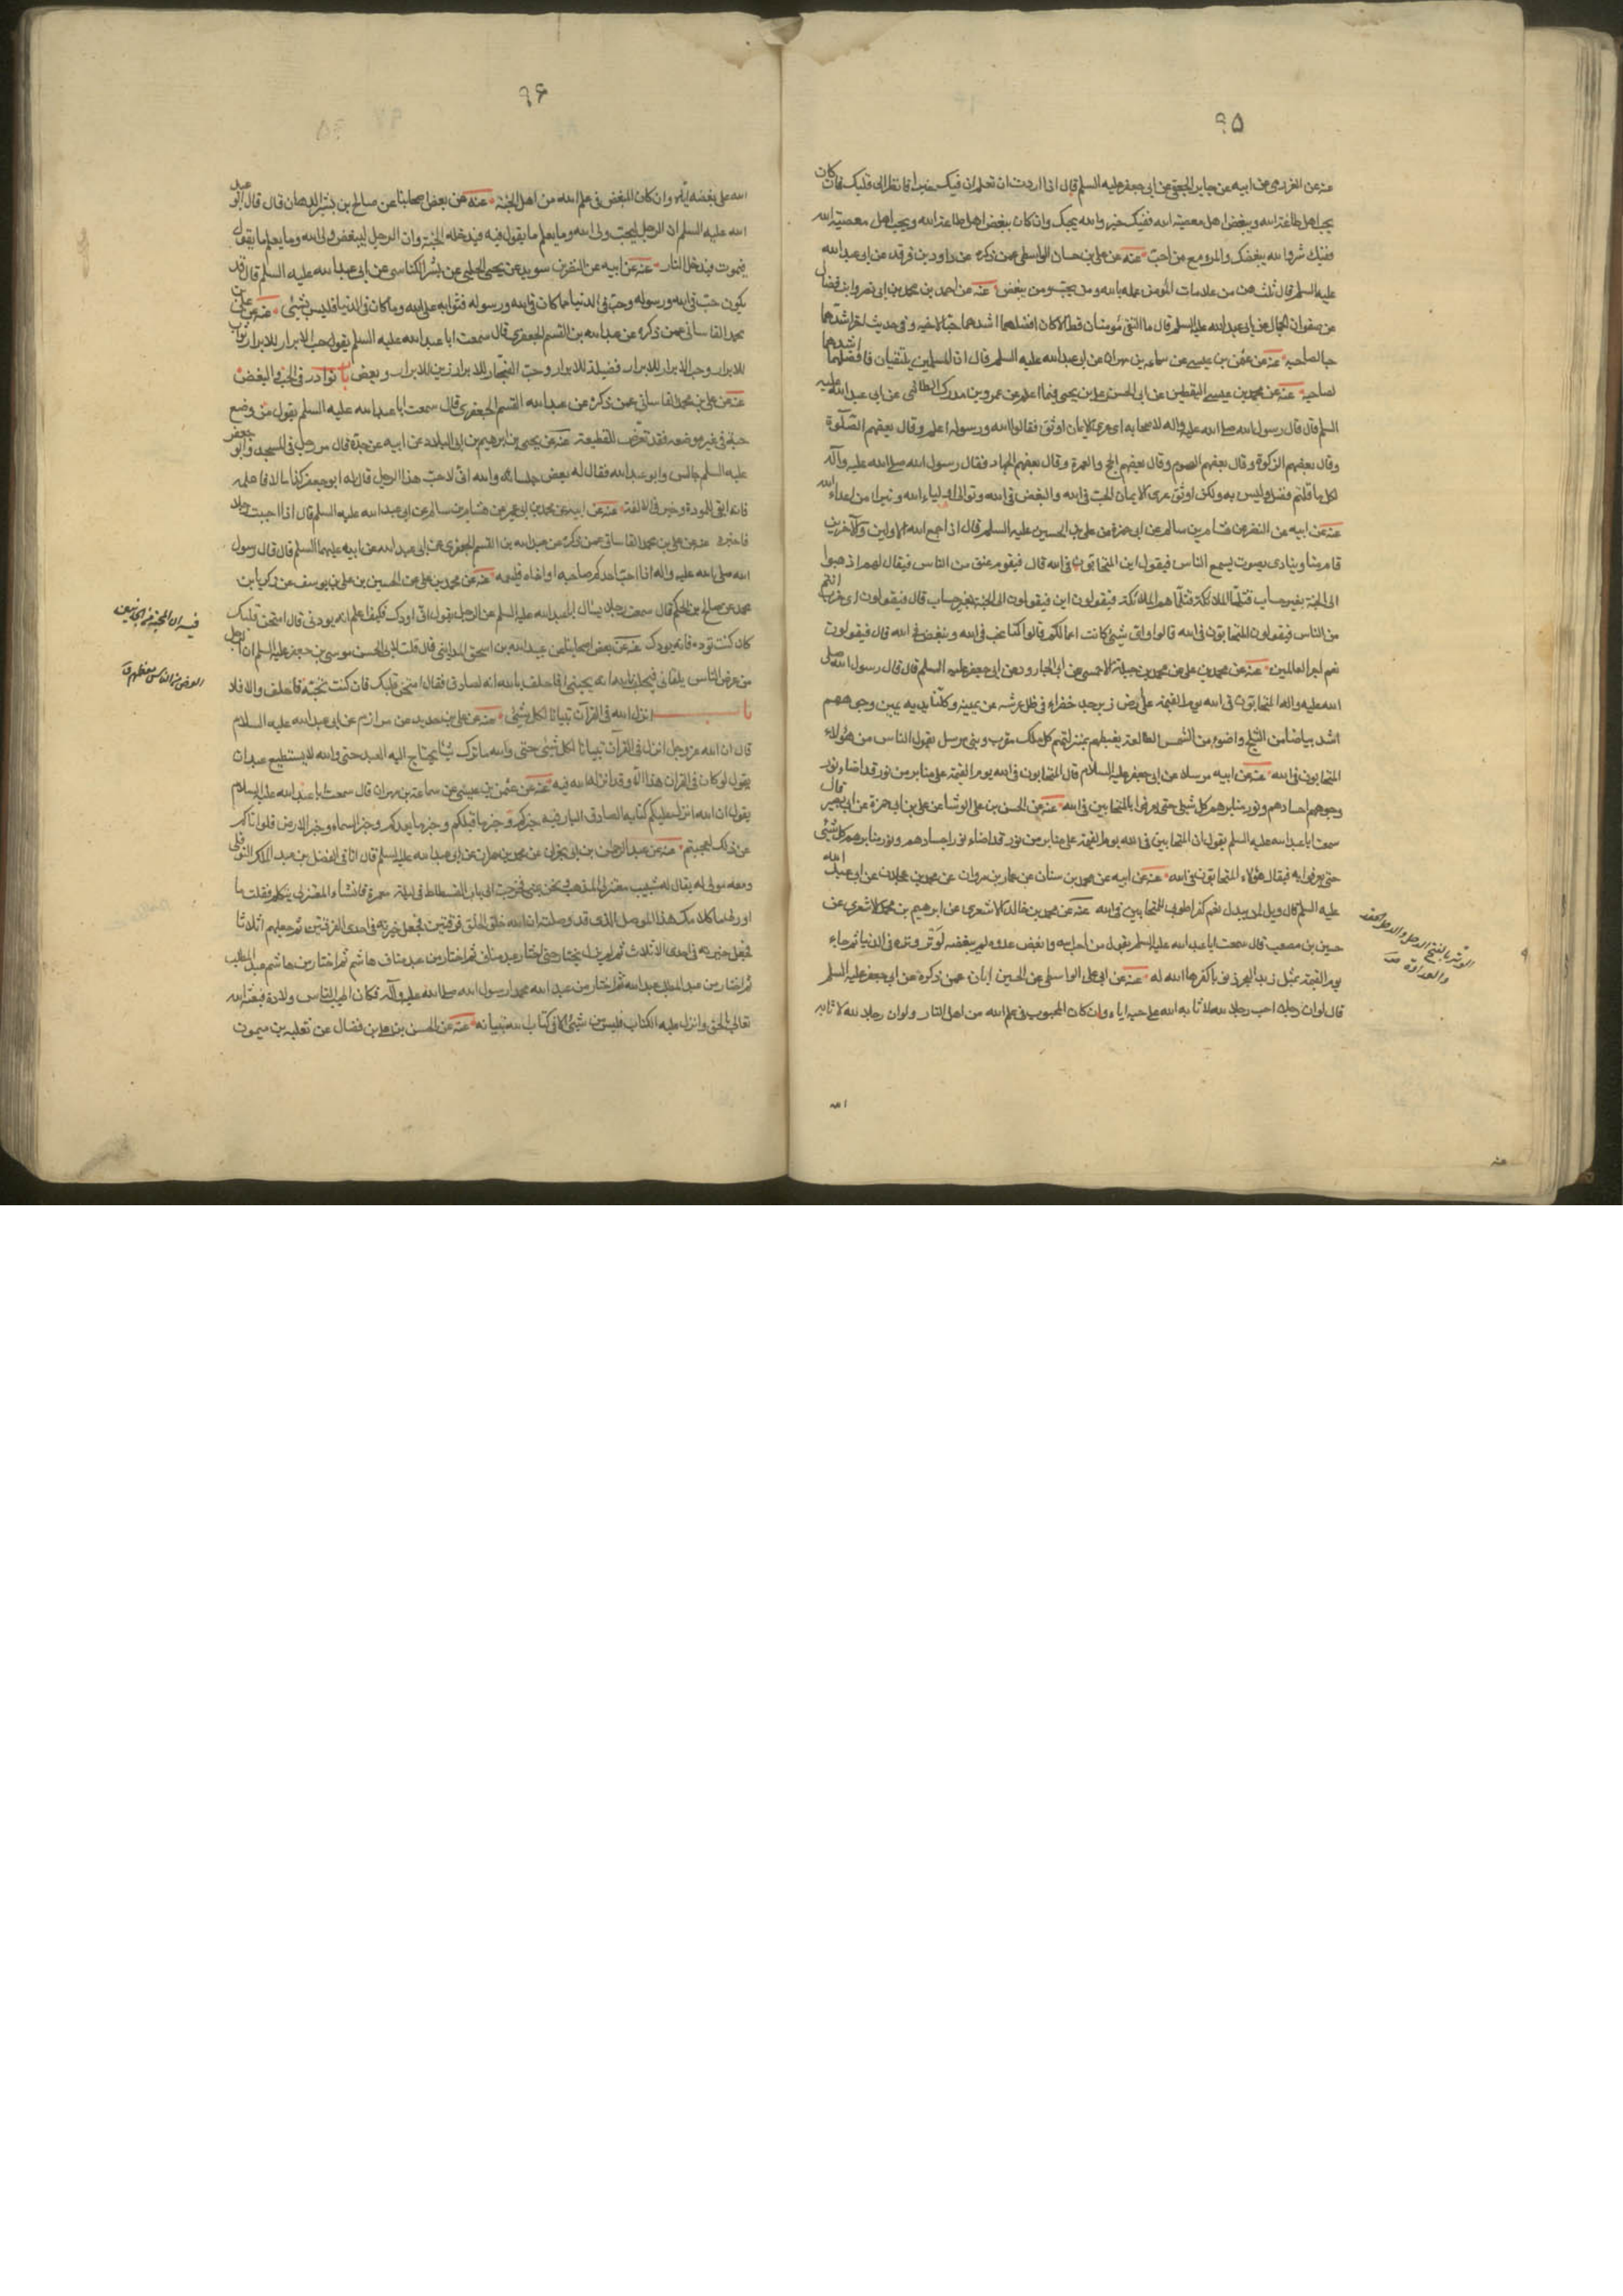 ٩۵
عنه عن العرزمي عن ابيه عن جابر الجعفي عن ابي جعفر عليه السلم قال اذا اردت ان تعلم ان فيك خيرا فانظر الى قلبك فان كان
يحب اهل طاعة الله ويبغض اهل معصية الله ففيك خير والله يحبك وان كان يبغض اهل طاعة الله ويحب اهل معصية الله
ففيك شر والله يبغضك والمرء مع من احب عنه عن علي بن حسان الواسطي عمن ذكره عن داود بن فرقد عن ابي عبد الله
عليه السلم قال ثلث هن من علامات المؤمن علمه بالله ومن يحب ومن يبغض عنه عن احمد بن محمد بن ابي نصر وابن فضال
عن صفوان الجمال عن ابي عبد الله عليه السلم قال ما التقى مؤمنان قط الا كان افضلهما اشدهما حبا لاخيه وفي حديث اخر اشدهما
حبا لصاحبه عنه عن عثمن بن عيسى عن سماعة بن مهران عن ابي عبد الله عليه السلم قال ان المسلمين يلتقيان فافضلهما اشدهما حبا
لصاحبه عنه عن محمد بن عيسى اليقطيني عن ابي الحسن علي بن يحيى فيما اعلم عن عمرو بن مدرك الطائي عن ابي عبد الله عليه
السلم قال قال رسول الله صلى الله عليه واله لاصحابه اي عرى الايمان اوثق فقالوا الله ورسوله اعلم وقال بعضهم الصلوة
وقال بعضهم الزكوة وقال بعضهم الصوم وقال بعضهم الحج والعمرة وقال بعضهم الجهاد فقال رسول الله صلى الله عليه وآله
لكل ما قلتم فضل وليس به ولكن اوثق عرى الايمان الحب في الله والبغض في الله وتوالي اولياء الله وتبرا من اعداء الله
عنه عن ابيه عن النضر عن هشام بن سالم عن ابي حمزة عن علي بن الحسين عليه السلم قال اذا جمع الله الاولين والآخرين
قام مناد ينادي بصوت يسمع الناس فيقول اين المتحابون في الله قال فيقوم عنق من الناس فيقال لهم اذهبوا
الى الجنة بغير حساب فتلقاهم الملائكة فيقولون اين فيقولون الى الجنة بغير حساب قال فيقولون اي ضرب انتم
من الناس فيقولون المتحابون في الله قالوا واي شيئ كانت اعمالكم قالوا كنا نحب في الله ونبغض في الله قال فيقولون
نعم اجر العاملين عنه عن محمد بن علي عن محمد بن جبلة الاحمسي عن ابي الجارود عن ابي جعفر عليه السلم قال قال رسول الله صلى
الله عليه واله المتحابون في الله يوم القيمة على ارض زبرجد خضراء في ظل عرشه عن يمينه وكلتا يديه يمين وجوههم
اشد بياضا من الثلج واضوء من الشمس الطالعة يغبطهم بمنزلتهم كل ملك مقرب ونبي مرسل يقول الناس من هؤلاء
المتحابون في الله عنه عن ابيه مرسلا عن ابي جعفر عليه السلام قال المتحابون في الله يوم القيمة على منابر من نور قد اضاء نور
وجوههم اجسادهم ونور منابرهم كل شيئ حتى يعرفوا بالمتحابين في الله عنه عن الحسن بن علي الوشا عن علي بن ابي حمزة عن ابي بصير قال
سمعت ابا عبد الله عليه السلم يقول ان المتحابين في الله يوم القيمة على منابر من نور قد اضاء نور اجسادهم ونور منابرهم كل شيئ
حتى يعرفوا به فيقال هؤلاء المتحابون في الله عنه عن ابيه عن محمد بن سنان عن عمار بن مروان عن محمد بن عجلان عن ابي عبد الله
عليه السلم قال ويل لمن يبدل نعم كفرا طوبى للمتحابين في الله عنه عن محمد بن خالد الاشعري عن ابرهيم بن محمد الاشعري عن
حسين بن مصعب قال سمعت ابا عبد الله عليه السلم يقول من احب الله وابغض عدوه لم يبغضه لوتر وتره في الدنيا ثم جاء
يوم القيمة بمثل زبد البحر ذنوبا كفرها الله له عنه عن ابي علي الواسطي عن الحسين ابان عمن ذكره عن ابي جعفر عليه السلم
قال لو ان رجلا احب رجلا لله لاثابه الله على حبه اياه وان كان المحبوب في علم الله من اهل النار ولو ان رجلا لله لاثابه
الله
الوتر بالفتح الدخل والدخل الحقد
والعداوة
عنه
٩۶
الله على بغضه اياه وان كان المبغض في علم الله من اهل الجنة عنه عن بعض اصحابنا عن صالح بن بشير الدهان قال قال ابو عبد
الله عليه السلم ان الرجل ليحب ولي الله وما يعلم ما يقول فيدخله الجنة وان الرجل ليبغض ولي الله وما يعلم ما يقول
فيموت فيدخل النار عنه عن ابيه عن النضر بن سويد عن يحيى الحلبي عن بشر الكناسي عن ابي عبد الله عليه السلم قال قد
يكون حب في الله ورسوله وحب في الدنيا فما كان في الله ورسوله فثوابه على الله وما كان في الدنيا فليس بشيئ عنه عن علي بن
محمد القاساني عمن ذكره عن عبد الله بن القسم الجعفري قال سمعت ابا عبد الله عليه السلم يقول حب الابرار للابرار ثواب
للابرار وحب الابرار للابرار فضيلة للابرار وحب الفجار للابرار زين للابرار وبغض باب نوادر في الحب والبغض
عنه عن علي بن محمد القاساني عمن ذكره عن عبد الله القسم الجعفري قال سمعت ابا عبد الله عليه السلم يقول من وضع
حبه في غير موضعه فقد تعرض للقطيعة عنه عن يحيى بن ابرهيم بن ابي البلاد عن ابيه عن جده قال مر رجل في المسجد وابو جعفر
عليه السلم جالس وابو عبد الله فقال له بعض جلسائه والله اني لاحب هذا الرجل قال له ابو جعفر الا فاعلمه
فانه ابقى للمودة وخير في الالفة عنه عن ابيه عن محمد بن ابي عمير عن هشام بن سالم عن ابي عبد الله عليه السلم قال اذا احببت رجلا
فاخبره عنه عن علي بن محمد القاساني عمن ذكره عن عبد الله بن القسم الجعفري عن ابي عبد الله عن ابيه عليهما السلم قال قال رسول
الله صلى الله عليه واله اذا احب احدكم صاحبه او اخاه فليعلمه عنه عن محمد بن علي عن الحسين بن علي بن يوسف عن زكريا بن
محمد عن صالح بن الحكم قال سمعت رجلا يسال ابا عبد الله عليه السلم عن الرجل يقول اني اودك فكيف اعلم انه يودني قال امتحن قلبك
كان كنت توده فانه يودك عنه عن بعض اصحابنا عن عبد الله بن اسحق المدايني قال قلت لابي الحسن موسى بن جعفر عليه السلم ان الرجل
من عرض الناس يلقاني فيحلف بالله انه يحبني افاحلف بالله انه لصادق فقال امتحن قلبك فان كنت تحبه فاحلف والا فلا
باب انزل الله في القرآن تبيانا لكل شيئ عنه عن علي بن حديد عن مرازم عن ابي عبد الله عليه السلام
قال ان الله عز وجل انزل في القرآن تبيانا لكل شيئ حتى والله ما ترك شيئا يحتاج اليه العبد حتى والله لا يستطيع عبد ان
يقول لو كان في القران هذا الا وقد انزله الله فيه عنه عن عثمن بن عيسى عن سماعة بن مهران قال سمعت ابا عبد الله عليه السلام
يقول ان الله انزل عليكم كتابه الصادق البار فيه خبركم وخبر ما قبلكم وخبر ما بعدكم وخبر السماء وخبر الارض فلو اتاكم
عن ذلك لعجبتم عنه عن عبد الرحمن بن ابي نجران عن محمد بن حمران عن ابي عبد الله عليه السلم قال اتاني الفضل بن عبد الملك النوفلي
ومعه مولى له يقال له شبيب معتزلي المذهب ونحن بمنى فخرجت الى باب الفسطاط في ليلة مقمرة فانشاء المعتزلي يتكلم فقلت ما
ادري ما كلامك هذا الموصل الذي قد وصلت ان الله خلق الخلق فرقتين فجعل خيرته في احدى الفرقتين ثم جعلهم اثلاثا
فجعل خيرته في احدى الاثلاث ثم لم يزل يختار حتى اختار عبد مناف ثم اختار من عبد مناف هاشم ثم اختار من هاشم عبد المطلب
ثم اختار من عبد المطلب عبد الله ثم اختار من عبد الله محمد ارسول الله صلى الله عليه وآله فكان اطيب الناس ولادة فبعثه الله
تعالى بالحق وانزل عليه الكتاب فليس من شيئ الا في كتاب الله تبيانه عنه عن الحسن بن علي بن فضال عن ثعلبة بن ميمون
فيه ان المحبة من الجانبين
العرض من الناس معظمهم ق